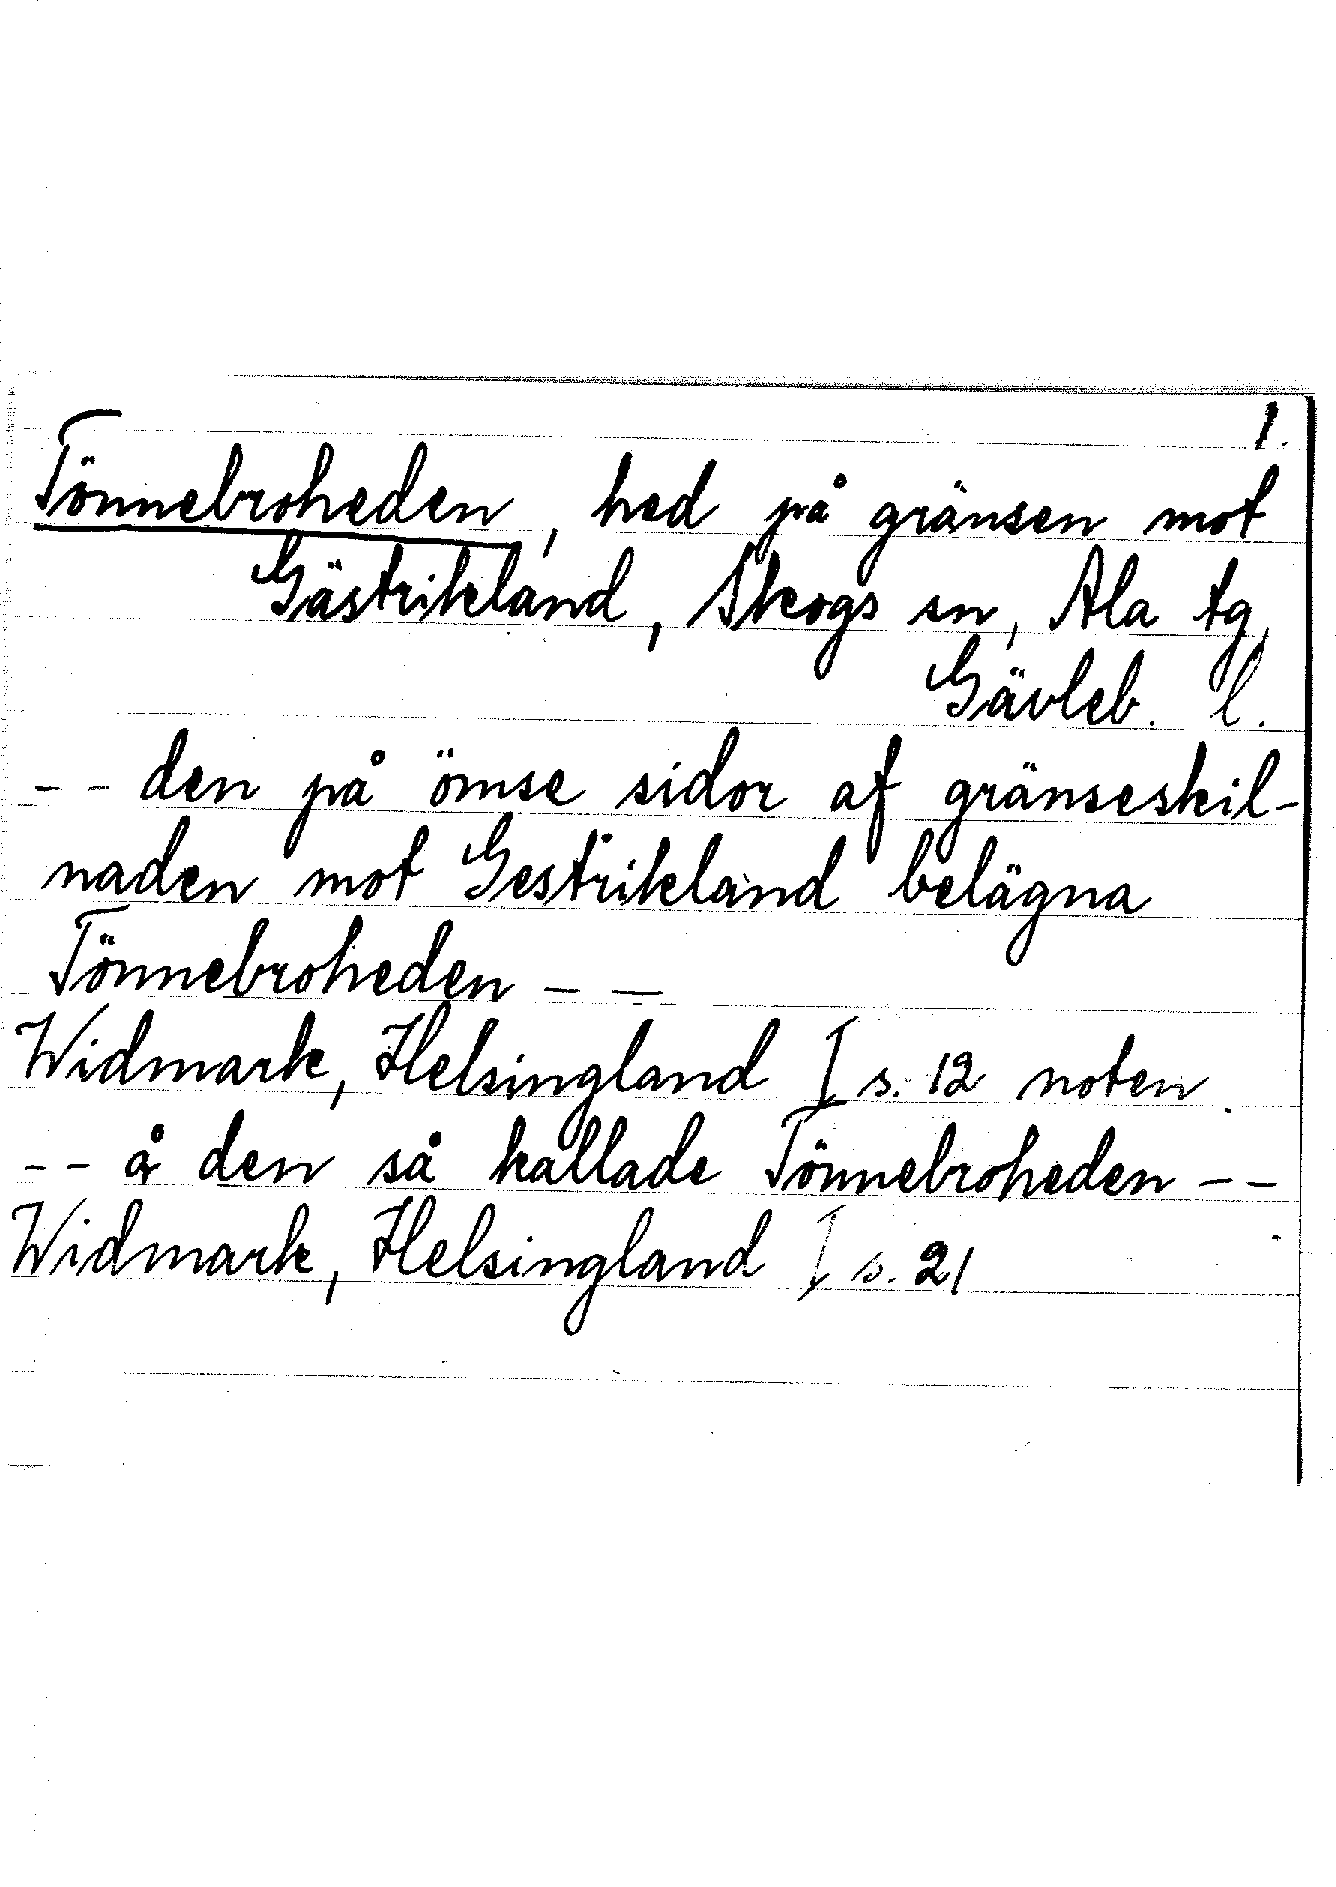 1.
Tönnebroheden, hed på gränsen mot
Gästrikland, Skogs sn, Ala tg,
Gävleb. l.
-- den på ömse sidor af gränseskil-
naden mot Gestrikland belägna
Tönnebroheden --
Widmark, Helsingland I s. 12 noten.
-- å den så kallade Tönnebroheden --
Widmark, Helsingland I s. 21